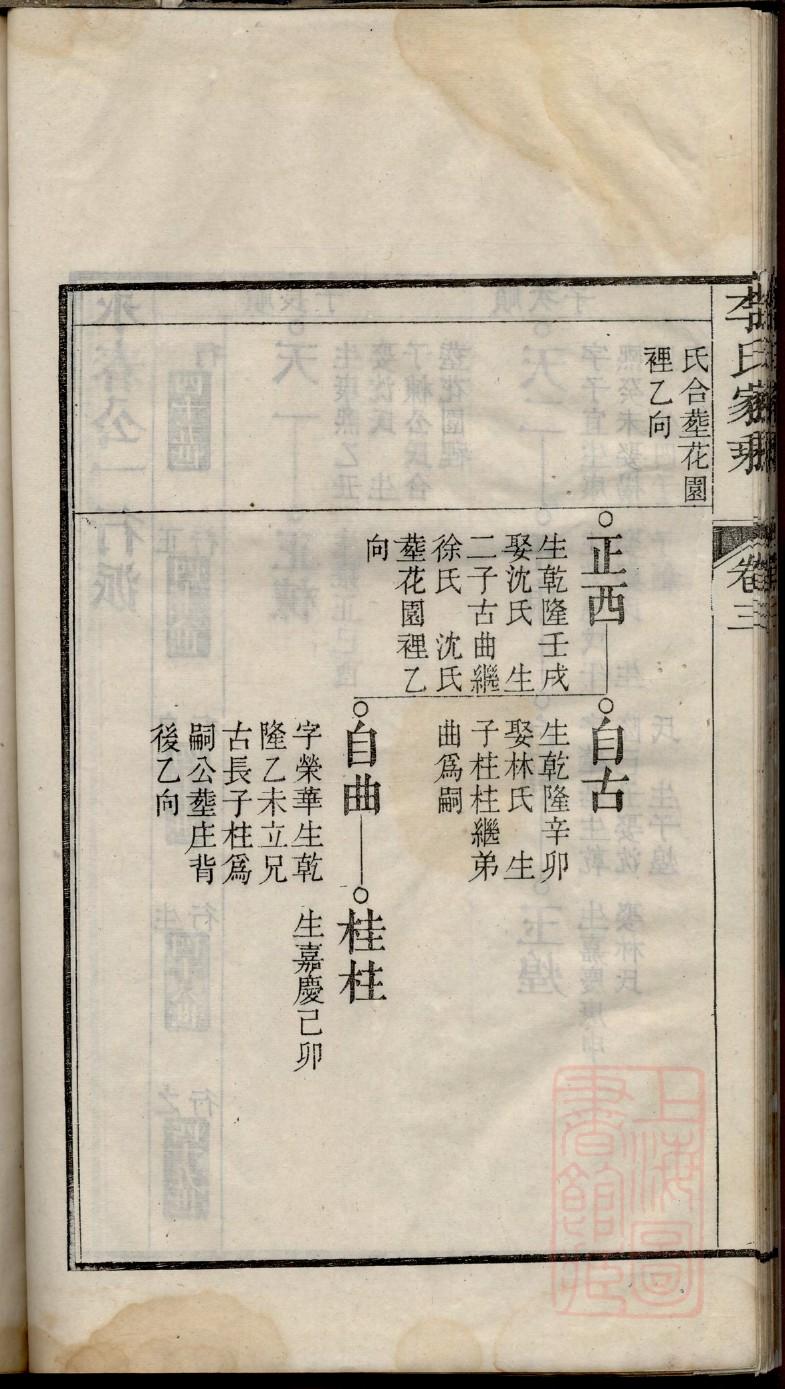 李氏家乘
卷三
氏合塟花園
裡乙向
正西
生乾隆壬戌
娶沈氏 生
二子古曲繼
徐氏 沈氏
塟花園裡乙
向
自古
生乾隆辛卯
娶林氏 生
子柱柱繼弟
曲爲嗣
自曲
字榮華生乾
隆乙未立兄
古長子柱爲
嗣公塟庄背
後乙向
桂柱
生嘉慶己卯
上海圖
書館藏